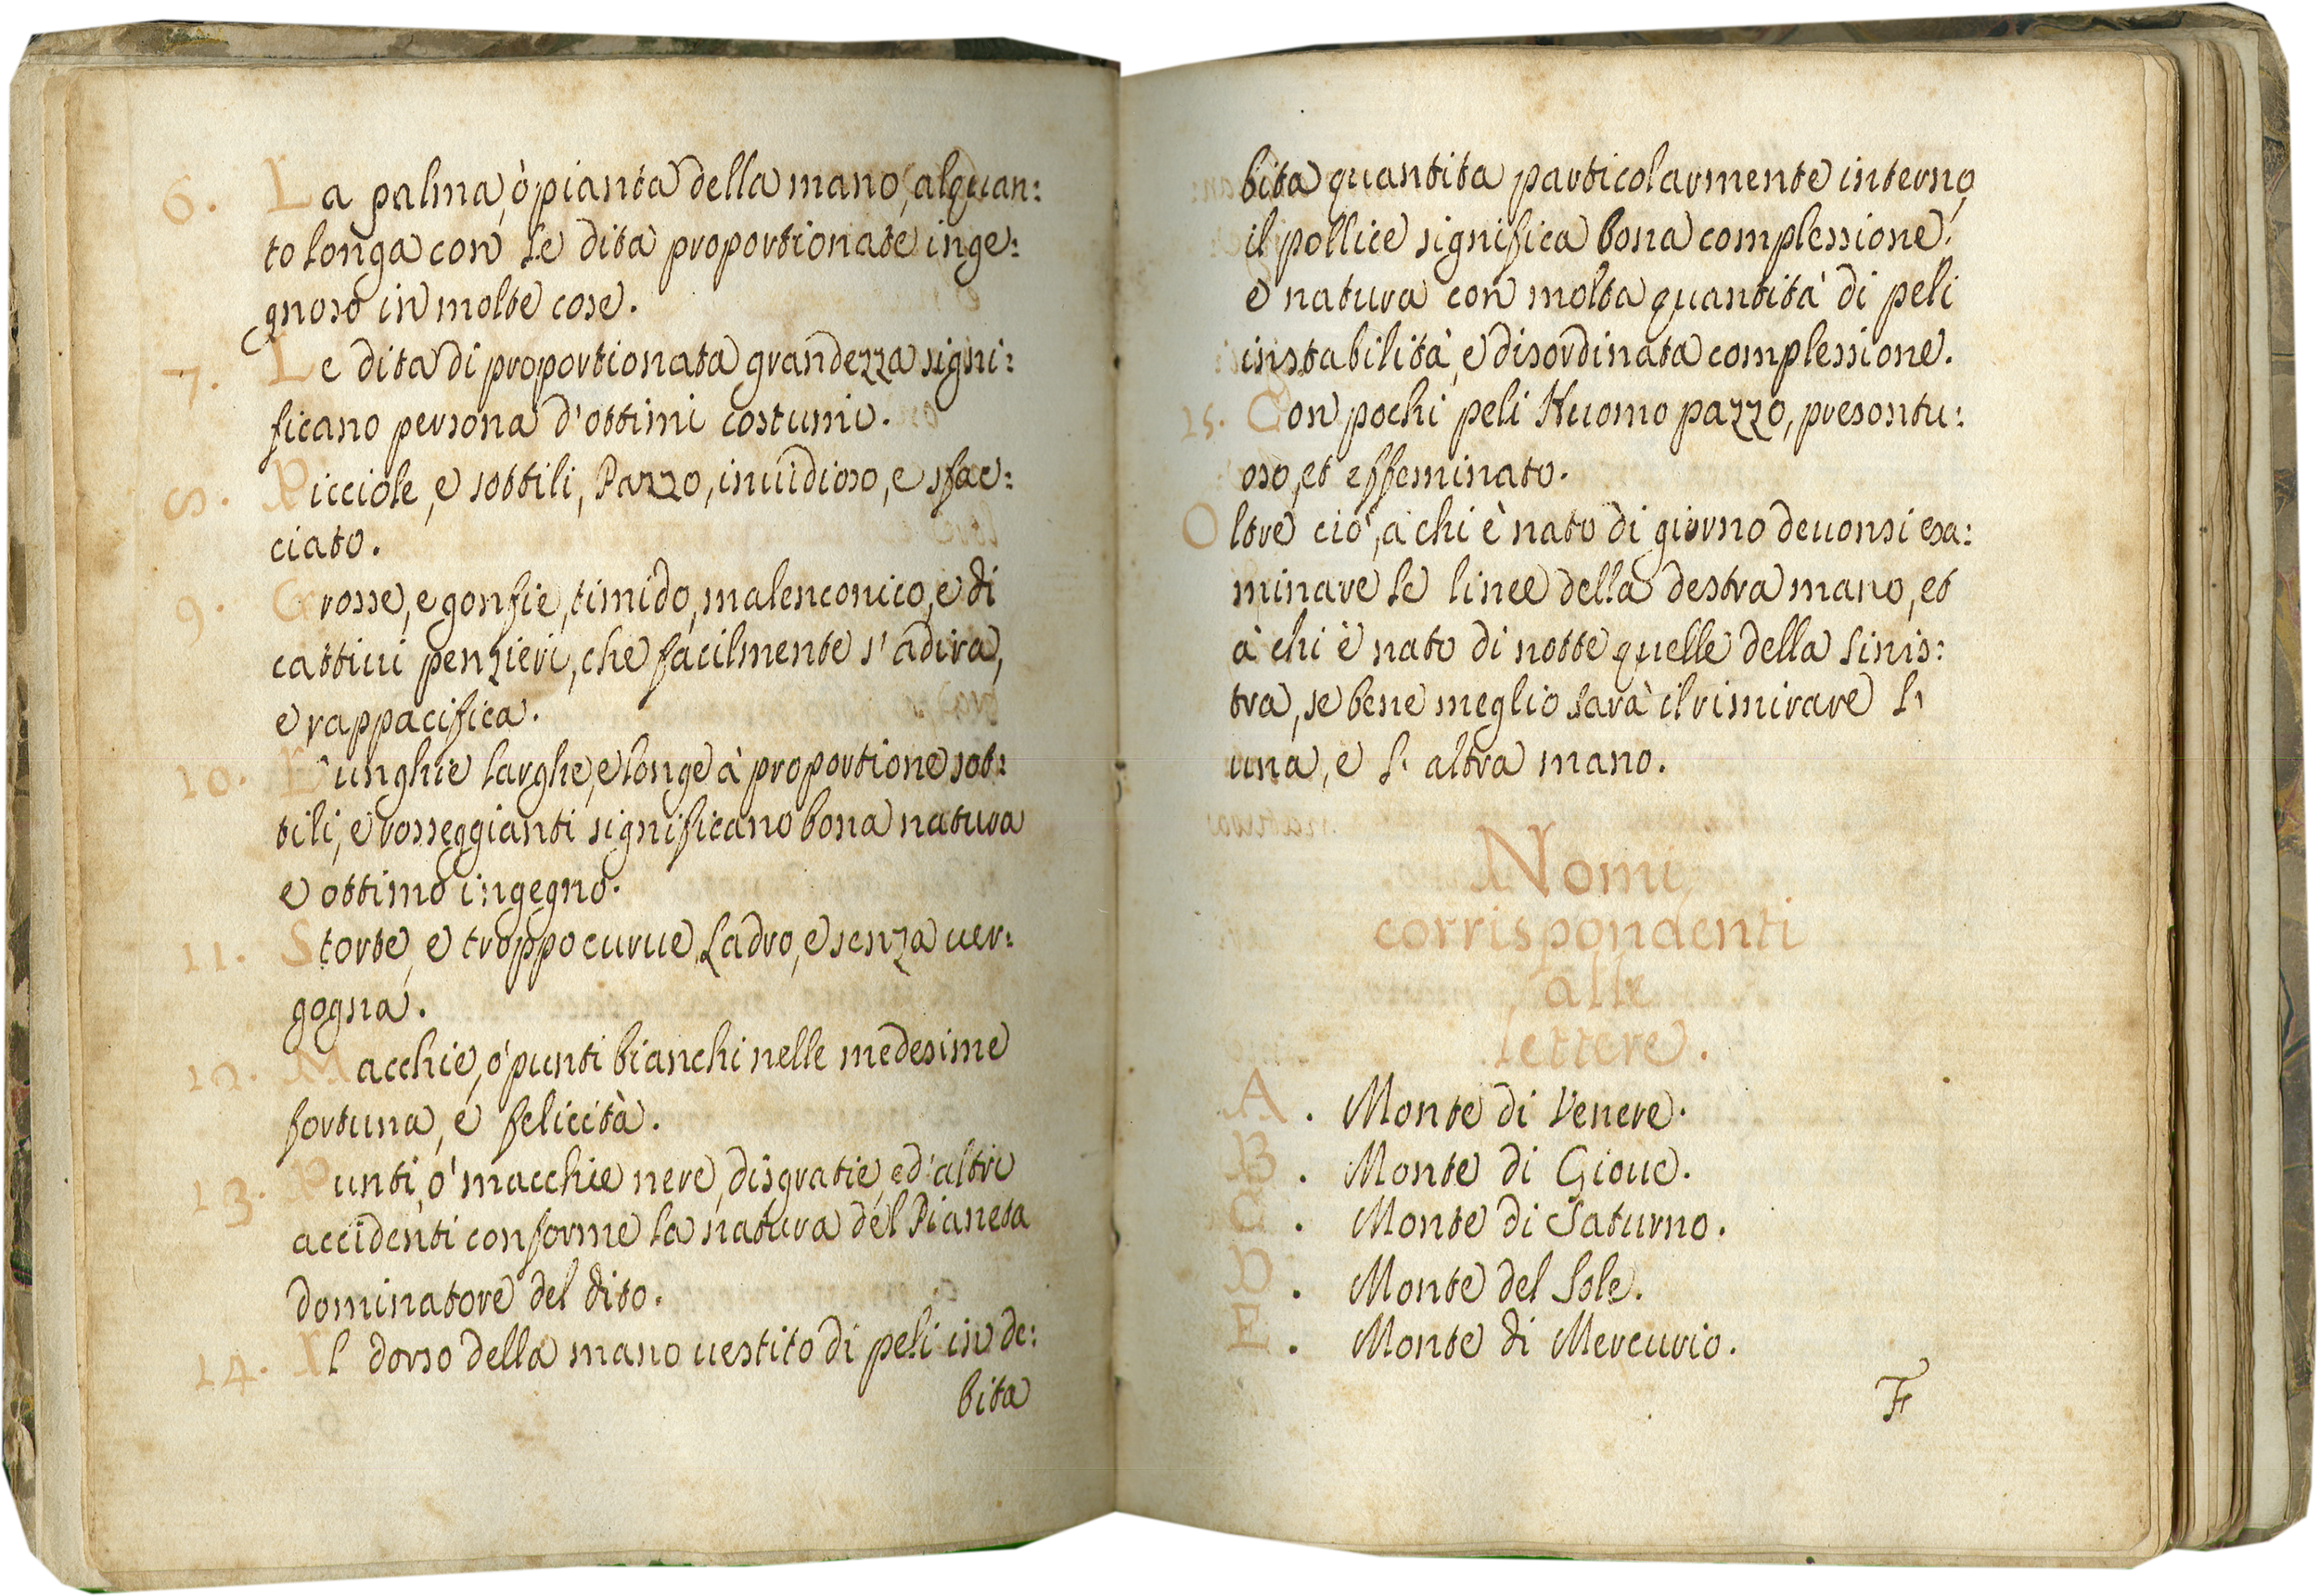 6. La palma, ò pianta della mano, alquan:
to longa con le dita proportionate inge:
gnoso in molte cose.
7. Le dita di proportionata grandezza signi:
ficano persona d'ottimi costumi.
8. Picciole, e sottili, Pazzo, inuidioso, e sfac:
ciato.
9. Grosse, e gonfie, timido, malenconico, e di
cattiui penzieri, che facilmente s'adira,
e rappacifica.
10. L'unghie larghe, e longe à proportione sot:
tili, e rosseggianti significano bona natura
e ottimo ingegno.
11. Storte, e troppo curue, Ladro, e senza uer:
gogna.
12. Macchie, ò punti bianchi nelle medesime
fortuna, e felicità.
13. Punti, o' macchie nere, disgratie, ed'altri
accidenti conforme la natura del Pianeta
dominatore del dito.
14. Il dorso della mano uestito di peli in de:
bita
bita quantita particolarmente interno
il pollice significa bona complessione,
e natura con molta quantità di peli
instabilità, e disordinata complessione.
15. Con pochi peli Huomo pazzo, presontu:
oso, et effeminato.
Oltre ciò, a chi è nato di giorno deuonsi esa:
minare le linee della destra mano, et
à chi è nato di notte quelle della sinis:
tra, se bene meglio sarà il rimirare l'
una, e l'altra mano.
Nomi
corrispondenti
alle
lettere.
A. Monte di Venere.
B. Monte di Gioue.
C. Monte di Saturno.
D. Monte del Sole.
E. Monte di Mercurio.
F